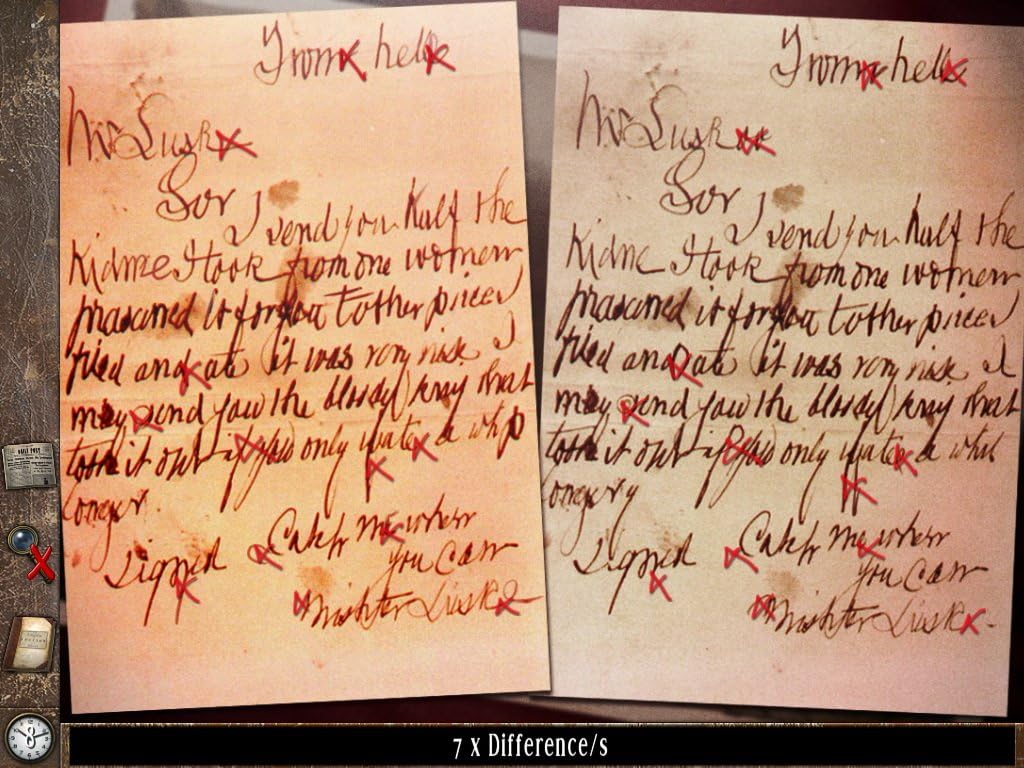 From hell
Mr Lusk
Sor
I send you half the
Kidnee I took from one women
prasarved it for you tother piece I
fried and ate it was very nise I
may send you the bloody knif that
took it out if you only wate a
longer
signed Catch me when
you can
Mishter Lusk
From hell
Mr Lusk
Sor
I send you half the
Kidne I took from one women
prasarved it for you tother piece I
fried and ate it was very nise I
may send you the bloody knif that
took it out if you only wate a whil
longer
signed Catch me when
you can
Mishter Lusk
DAILY POST
7 x Difference/s